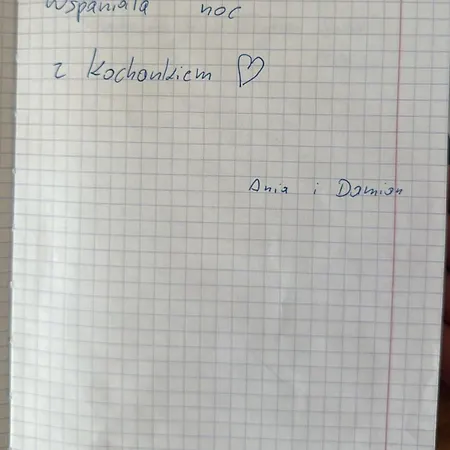 Wspaniała noc
z kochankiem ♡
Ania i Damian